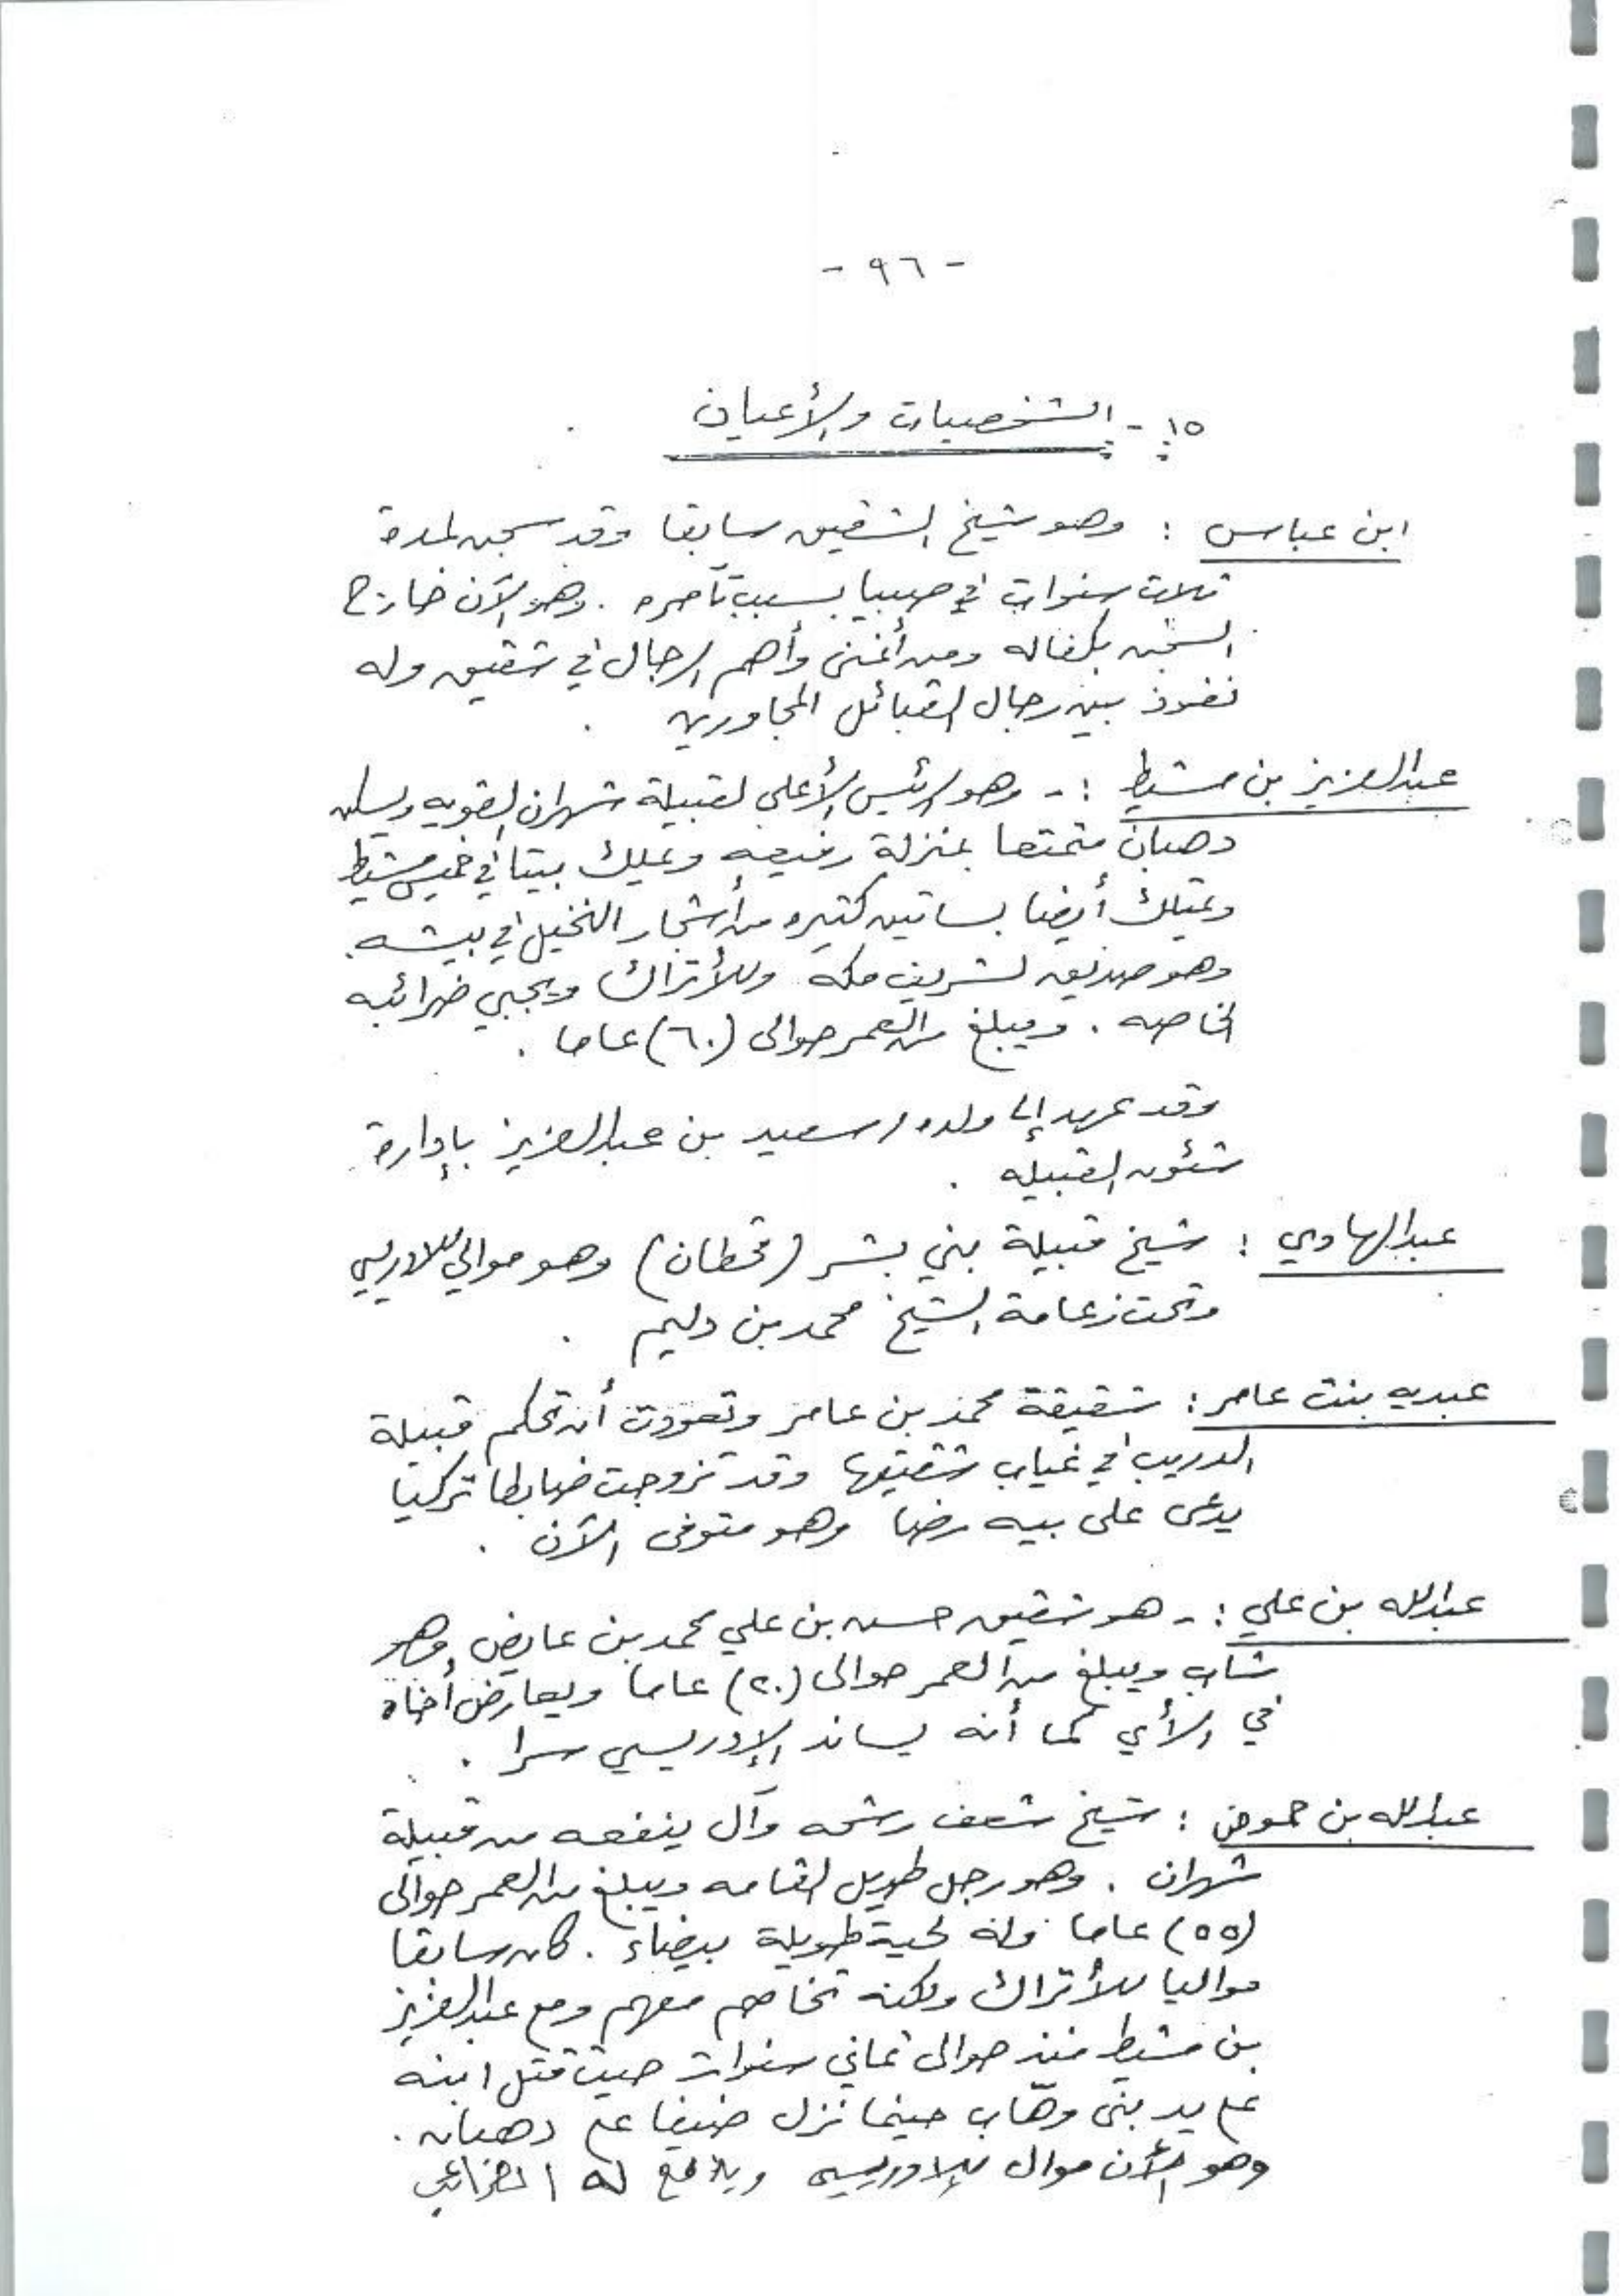 - ٩٦ -
١٥ - الشخصيات والأعيان
ابن عباس : وهو شيخ الشقيق سابقا وقد سجن لمدة
ثلاث سنوات في صبيا بسبب تآمره . وهو الآن خارج
السجن بكفاله ومن أغنى وأهم الرجال في شقيق وله
نفوذ بين رجال القبائل المجاورين .
عبدالعزيز بن مشيط :- وهو الرئيس الأعلى لقبيلة شهران القويه ويسكن
دهبان متمتعا بمنزلة رفيعه ويملك بيتا في خميس مشيط
ويمتلك أيضا بساتين كثيره من أشجار النخيل في بيشه .
وهو صديق لشريف مكه وللأتراك ويجبي ضرائبه
الخاصه . ويبلغ من العمر حوالى (٦٠) عاما .
وقد عهد إلى ولده / سعيد بن عبدالعزيز بإدارة
شئون القبيله .
عبدالهادي : شيخ قبيلة بني بشر (قحطان) وهو موالي للادريسي
وتحت زعامة الشيخ محمد بن دليم .
عبديه بنت عامر : شقيقة محمد بن عامر وتعودت أن تحكم قبيلة
الدريب في غياب شقيقها وقد تزوجت ضابطا تركيا
يدعى على بيه رضا وهو متوفى الآن .
عبدالله بن علي :- هو شقيق حسن بن علي محمد بن عايض وهو
شاب ويبلغ من العمر حوالى (٢٠) عاما ويعارض أخاه
في الرأي كما أنه يساند الإدريسي سرا .
عبدالله بن حموض : شيخ شعف رشحه وآل ينفعه من قبيلة
شهران . وهو رجل طويل القامه ويبلغ من العمر حوالى
(٥٥) عاما وله لحية طويلة بيضاء . كان سابقا
مواليا للأتراك ولكنه تخاصم معهم ومع عبدالعزيز
بن مشيط منذ حوالى ثماني سنوات حيث قتل ابنه
على يد بنى وهّاب حينما نزل ضيفا على دهبان .
وهو الأن موال للإدريسي ويدفع له الضرائب